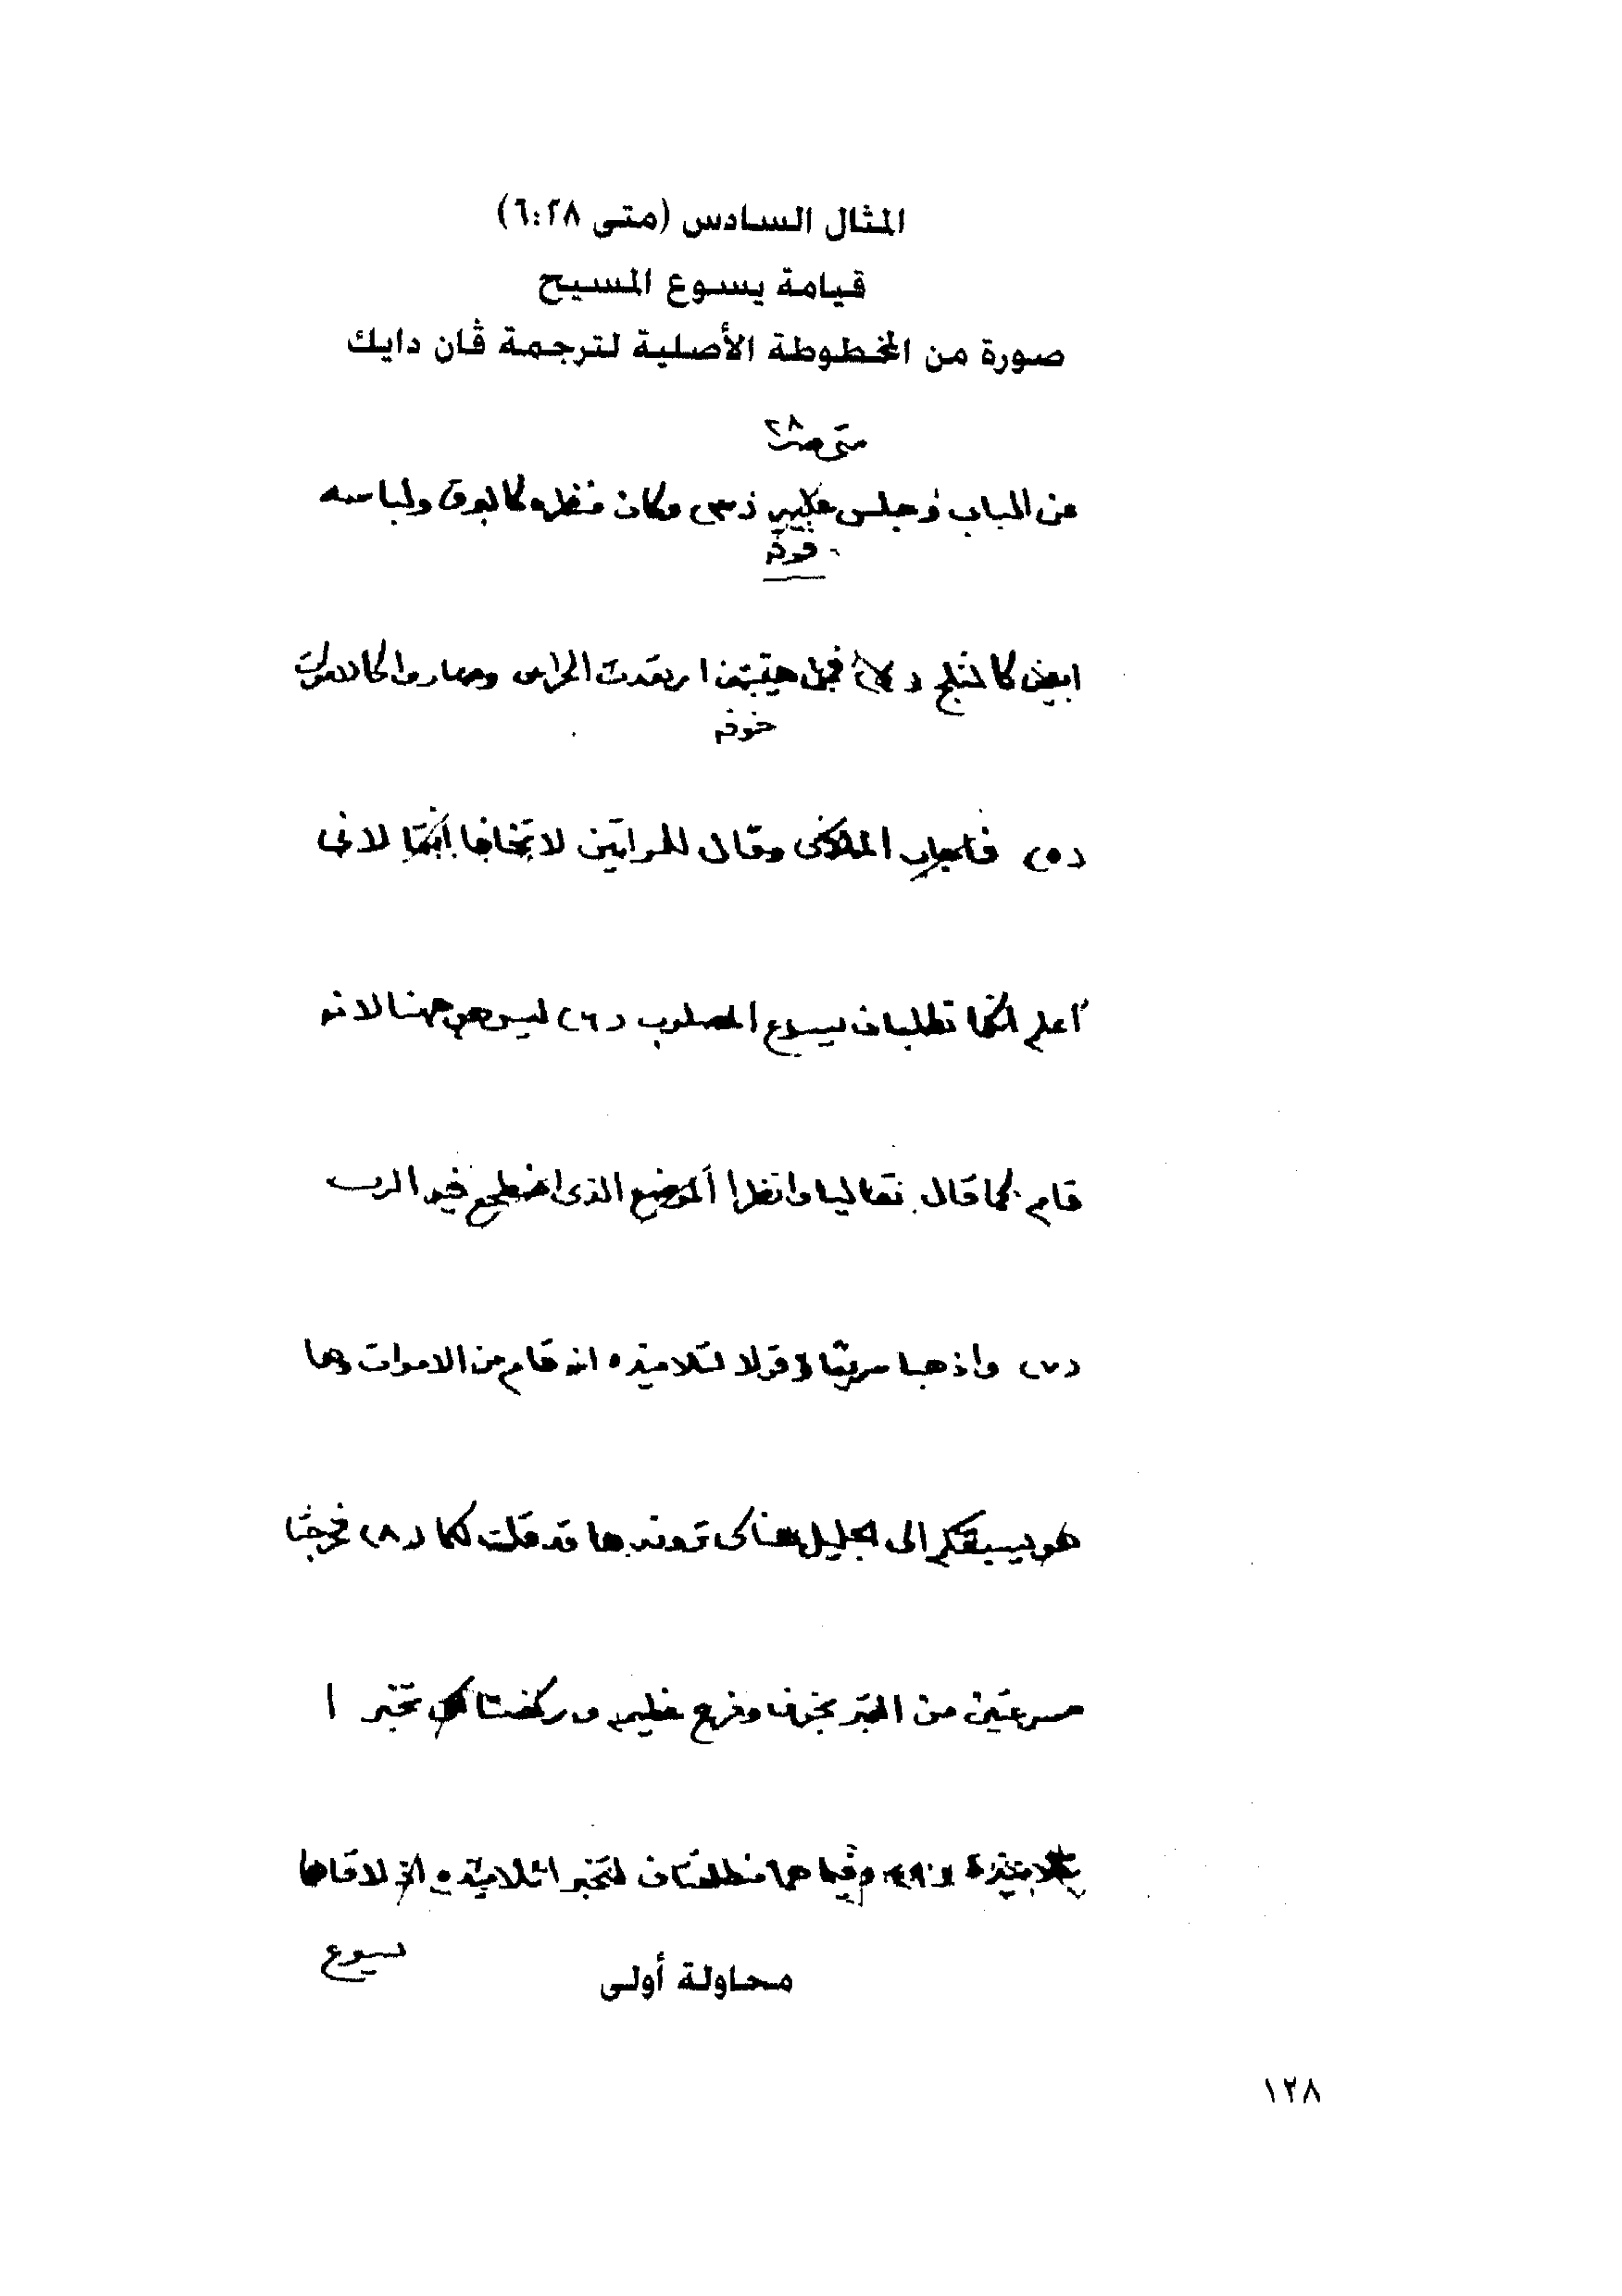 المثال السادس (متى ٦:٢٨)
قيامة يسوع المسيح
صورة من المخطوطة الأصلية لترجمة ڤان دايك
متى ٢٨
عن الباب وجلس عليه (٣) وكان منظره كالبرق ولباسه
ابيض كالثلج (٤) ارتعدت الحراس وصاروا كالاموات
خوفه
(٥) فاجاب الملاك وقال للمراتين لا تخافا انتما لاني
اعلم انكما تطلبان يسوع المصلوب (٦) ليس هو ههنا لانه
قام كما قال. تعاليا وانظرا الموضع الذى اضطجع فيه الرب
(٧) واذهبا سريعًا وقولا لتلاميذه انه قام من الاموات وها
هو يسبقكم الى الجليل هناك ترونه ها قد قلت لكما (٨) فخرجتا
مسرعتين من القبر بخوف وفرح عظيم وركضتا تخبر ا
تلاميذه (٩) وفيما هما منطلقتان لتخبرا تلاميذه اذ لاقاهما
يسوع
محاولة أولى
١٢٨